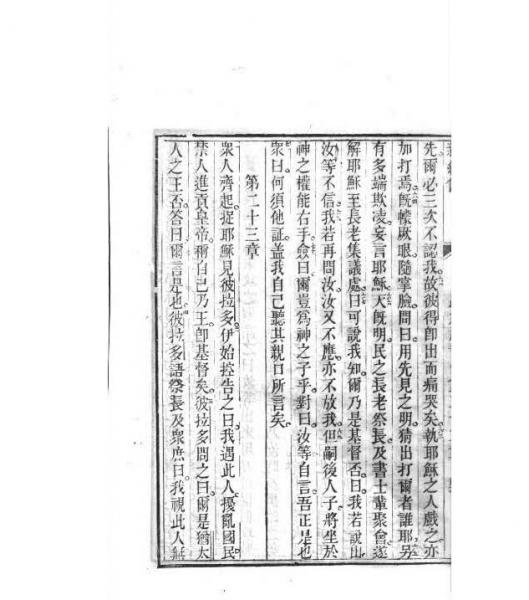 先爾必三次不認我故彼得卽出而痛哭矣執耶穌之人戲之亦
加打焉旣幪厥眼隨掌臉問曰用先見之明猜出打爾者誰耶另
有多端欺凌妄言耶穌天旣明民之長老祭長及書士輩聚會遂
解耶穌至長老集議處曰可說我知爾乃是基督否曰我若說出
汝等不信我若再問汝汝又不應亦不放我但嗣後人子將坐於
神之權能右手僉曰爾豈爲神之子乎對曰汝等自言吾正是也
衆曰何須他証蓋我自己聽其親口所言矣
第二十三章
衆人齊起捉耶穌見彼拉多伊始控告之曰我遇此人擾亂國民
禁人進貢皇帝稱自己乃王卽基督矣彼拉多問之曰爾是猶太
人之王否答曰爾言是也彼拉多語祭長及衆庶曰我視此人無